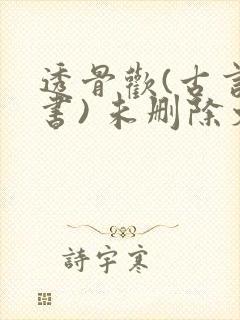 透骨歡(古言
書)未刪除
詩宇寒